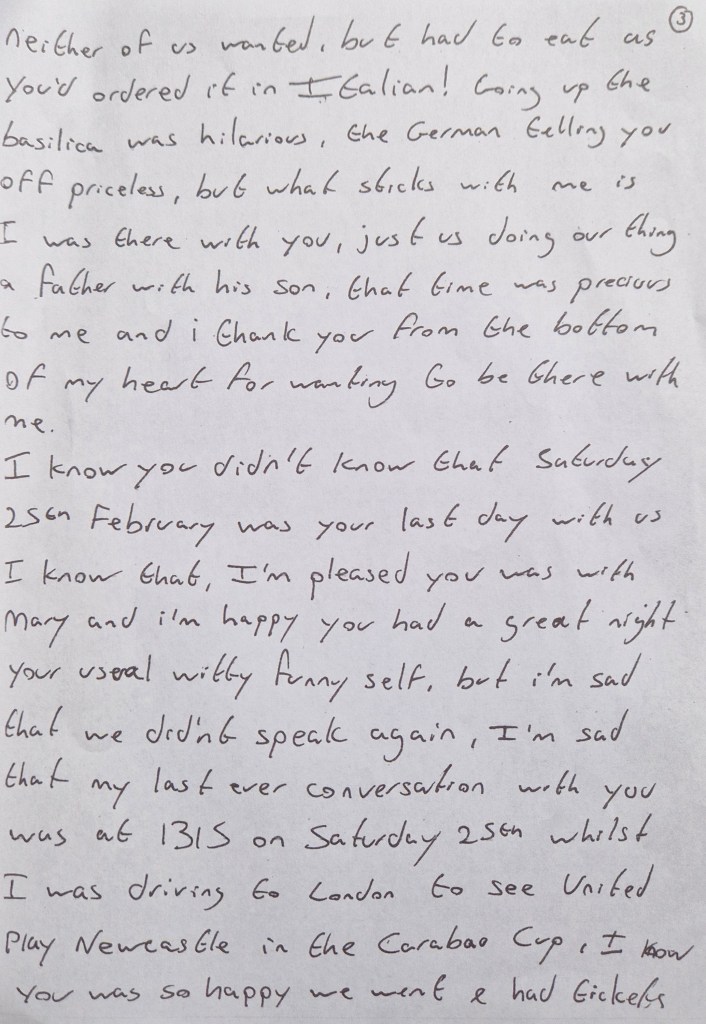 3
neither of us wanted, but had to eat as
you'd ordered it in Italian! Going up the
basilica was hilarious, the German telling you
off priceless, but what sticks with me is
I was there with you, just us doing our thing
a father with his son, that time was precious
to me and i thank you from the bottom
of my heart for wanting to be there with
me.
I know you didn't know that Saturday
25th February was your last day with us
I know that, I'm pleased you was with
Mary and i'm happy you had a great night
your usual witty funny self, but i'm sad
that we did'nt speak again, I'm sad
that my last ever conversation with you
was at 1315 on Saturday 25th whilst
I was driving to London to see United
Play Newcastle in the Carabao Cup, I know
you was so happy we went & had tickets